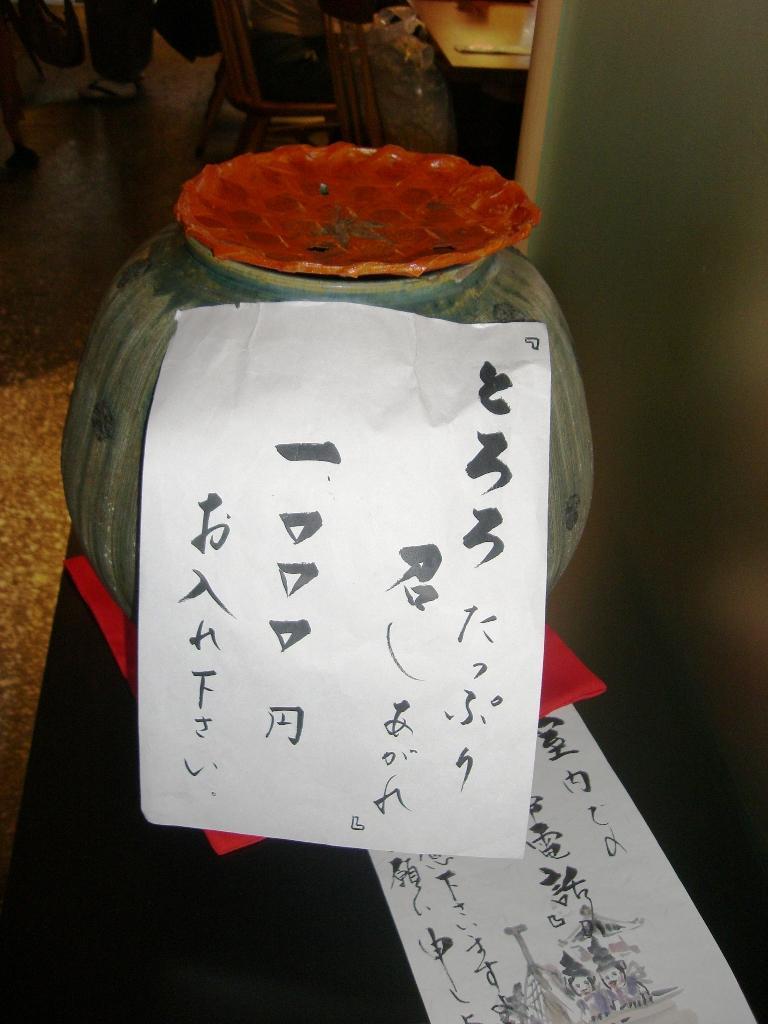 『とろろたっぷり
召しあがれ』
一〇〇〇円
お入れ下さい。
室内での
電話』の
下さいますよ
願い申し